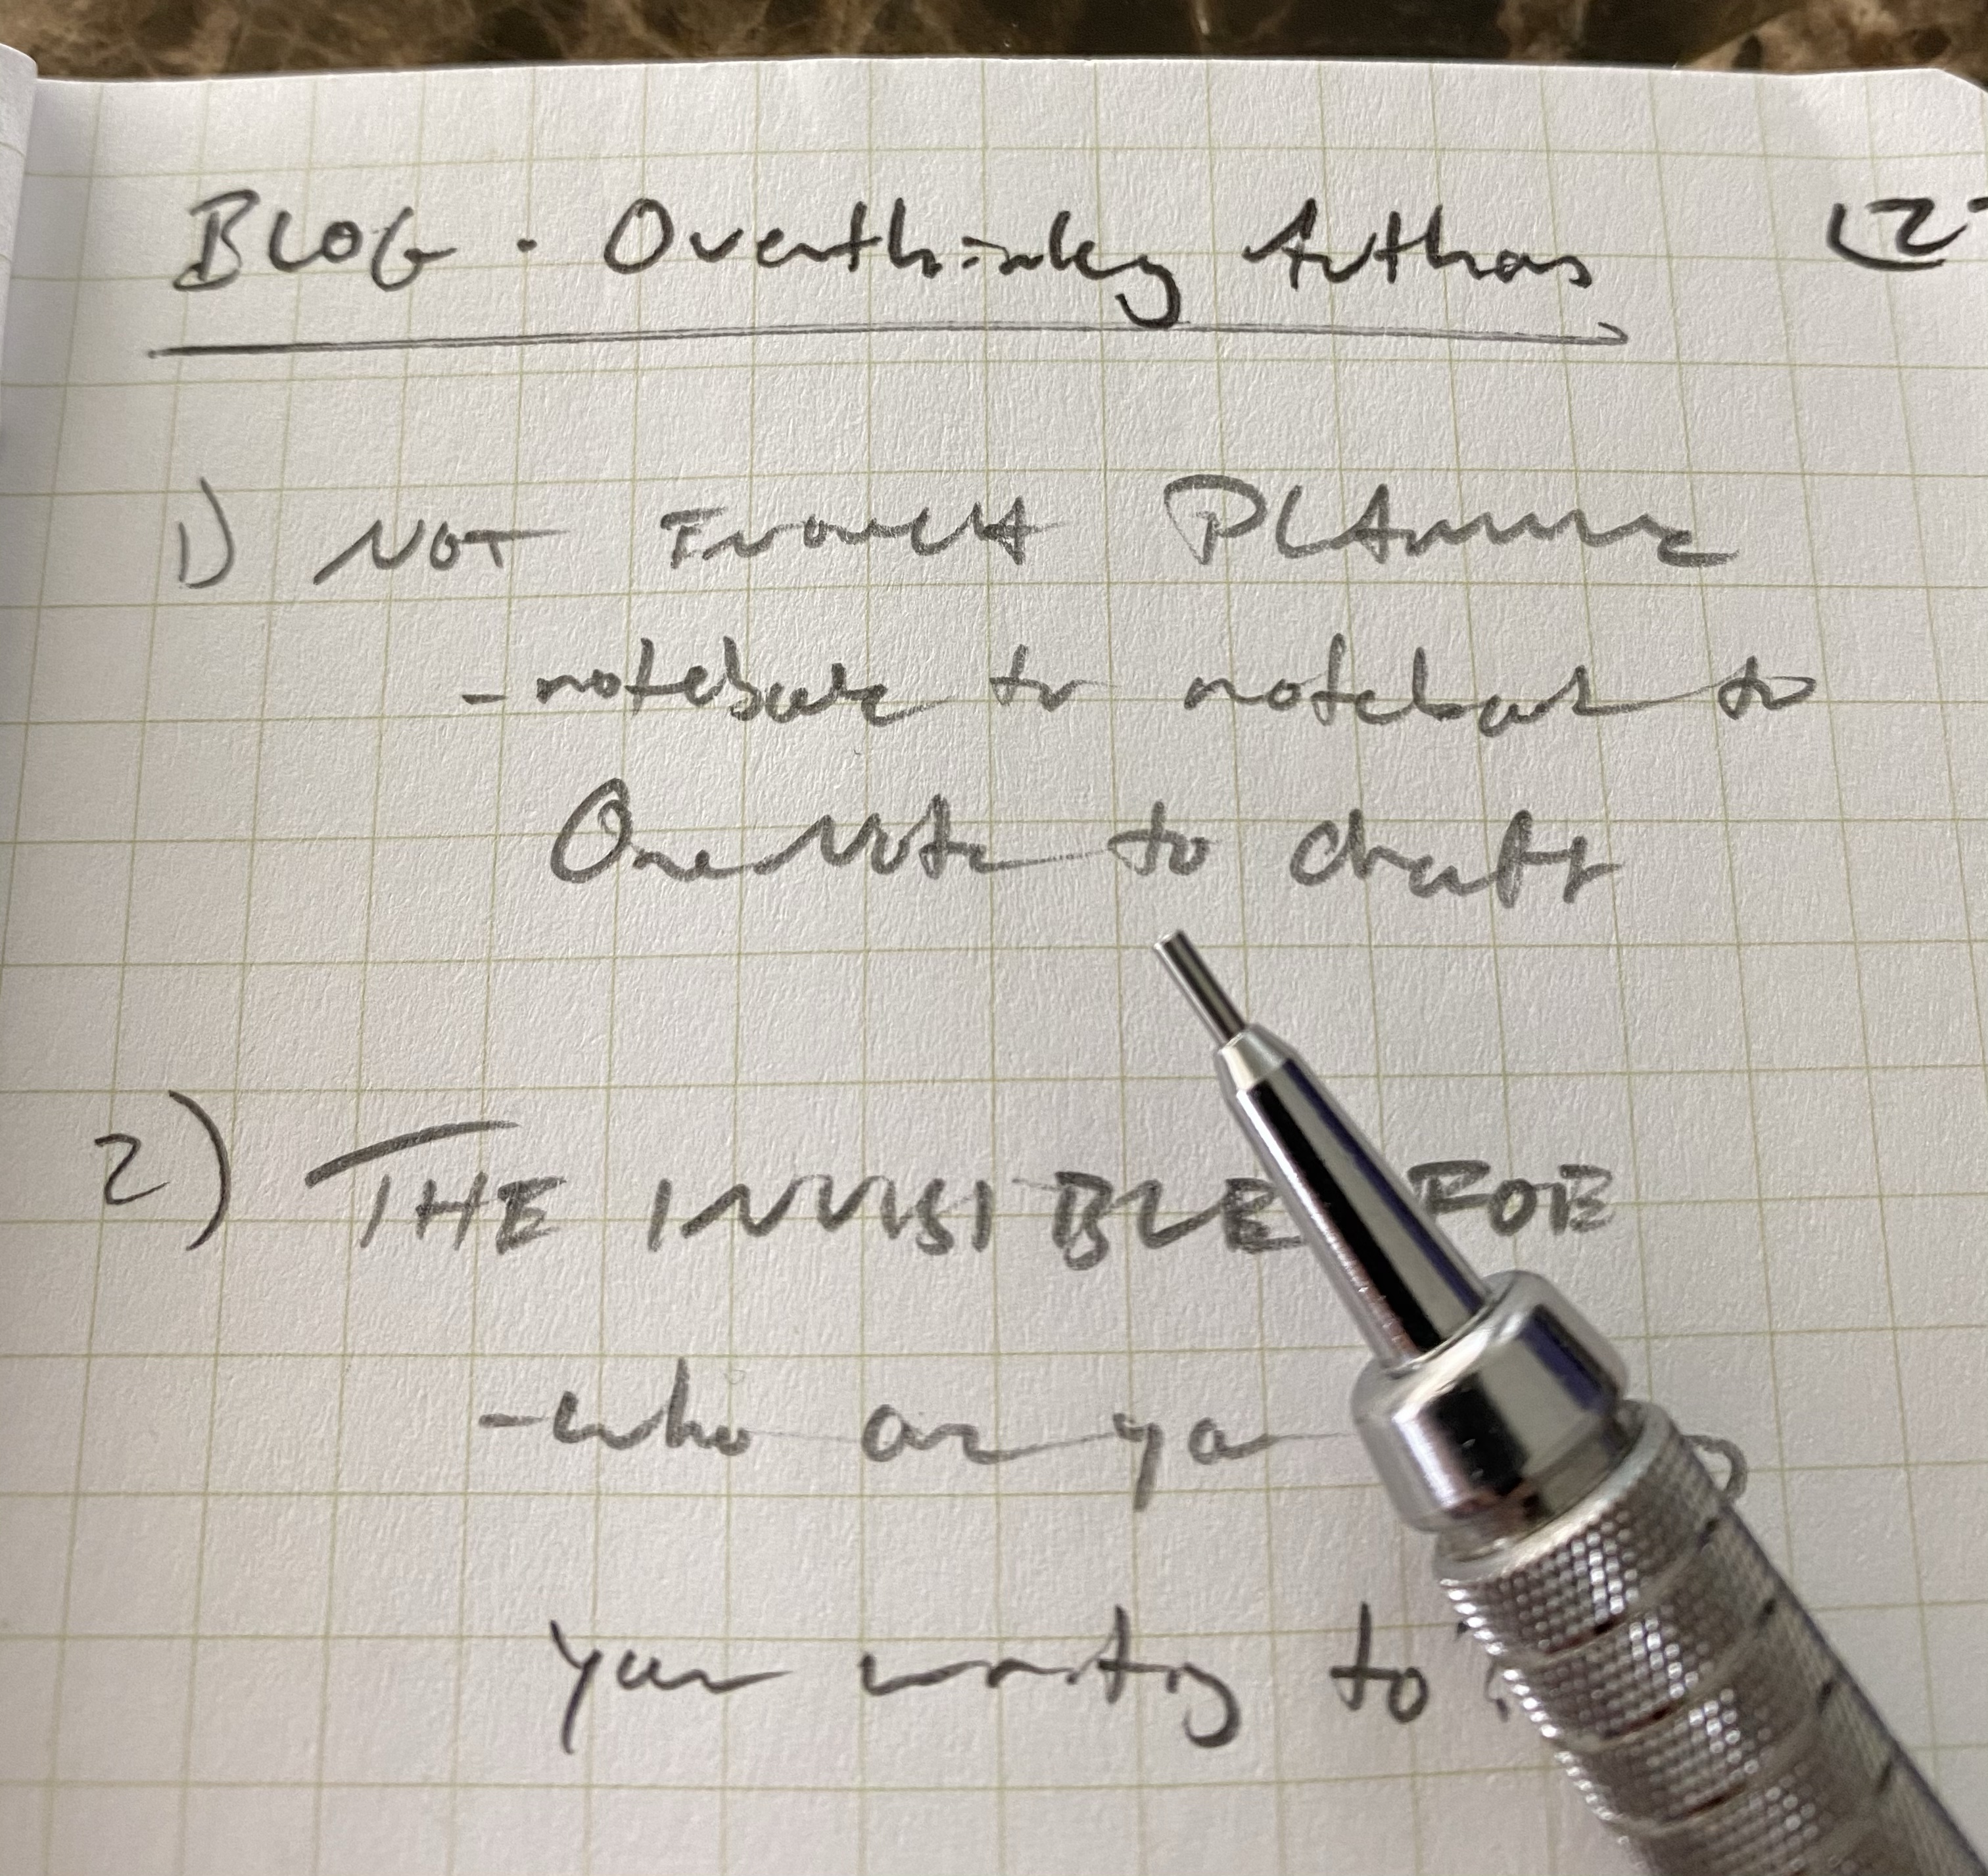 BLOG · Overthinking Authors
1) NOT ENOUGH PLANNING
- notebook to notebook to
OneNote to draft
2) THE INVISIBLE FOE
- who are you
your writing to?